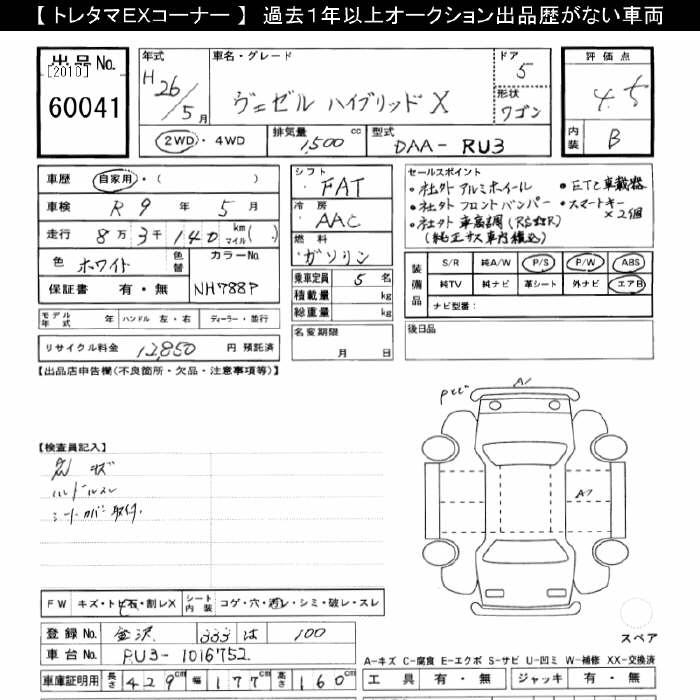 【 トレタマEXコーナー 】 過去1年以上オークション出品歴がない車両
出品No.
[2010]
60041
年式 車名・グレード ドア 評価点
H 26/5月 ヴェゼル ハイブリッド X 5 4.5
形状 ワゴン
2WD・4WD 排気量 1,500cc 型式 DAA-RU3 内装 B
車歴 自家用・( )
車検 R 9年 5月
走行 8万 3千 140 km マイル( )
色 ホワイト 色替 カラーNo. NH788P
保証書 有・無
モデル年式 年 ハンドル 左・右 ディーラー・並行
リサイクル料金 12,850 円 預託済
シフト FAT
冷房 AAC
燃料 ガソリン
乗車定員 5名
積載量 kg
総重量 kg
名変期限 月 日
セールスポイント
・社外アルミホイール ・ETC車載器
・社外フロントバンパー ・スマートキー×2個
・社外車高調(RS★R)
(純正サス車内積込)
装備品 S/R 純A/W P/S P/W ABS
純TV 純ナビ 革シート 外ナビ エアB
ナビ型番:
後日品
【出品店申告欄(不良箇所・欠品・注意事項等)】
【検査員記入】
ハンドルスレ
シートカバー取付
A1
A1
FW キズ・トビ石・割レX シート内装 コゲ・穴・汚レ・シミ・破レ・スレ
登録No. 金沢 333 は 100
車台No. RU3-1016752
車庫証明用 長さ 429cm 幅 177cm 高さ 160cm
スペア
A-キズ C-腐食 E-エクボ S-サビ U-凹ミ W-補修 XX-交換済
工具 有・無 ジャッキ 有・無